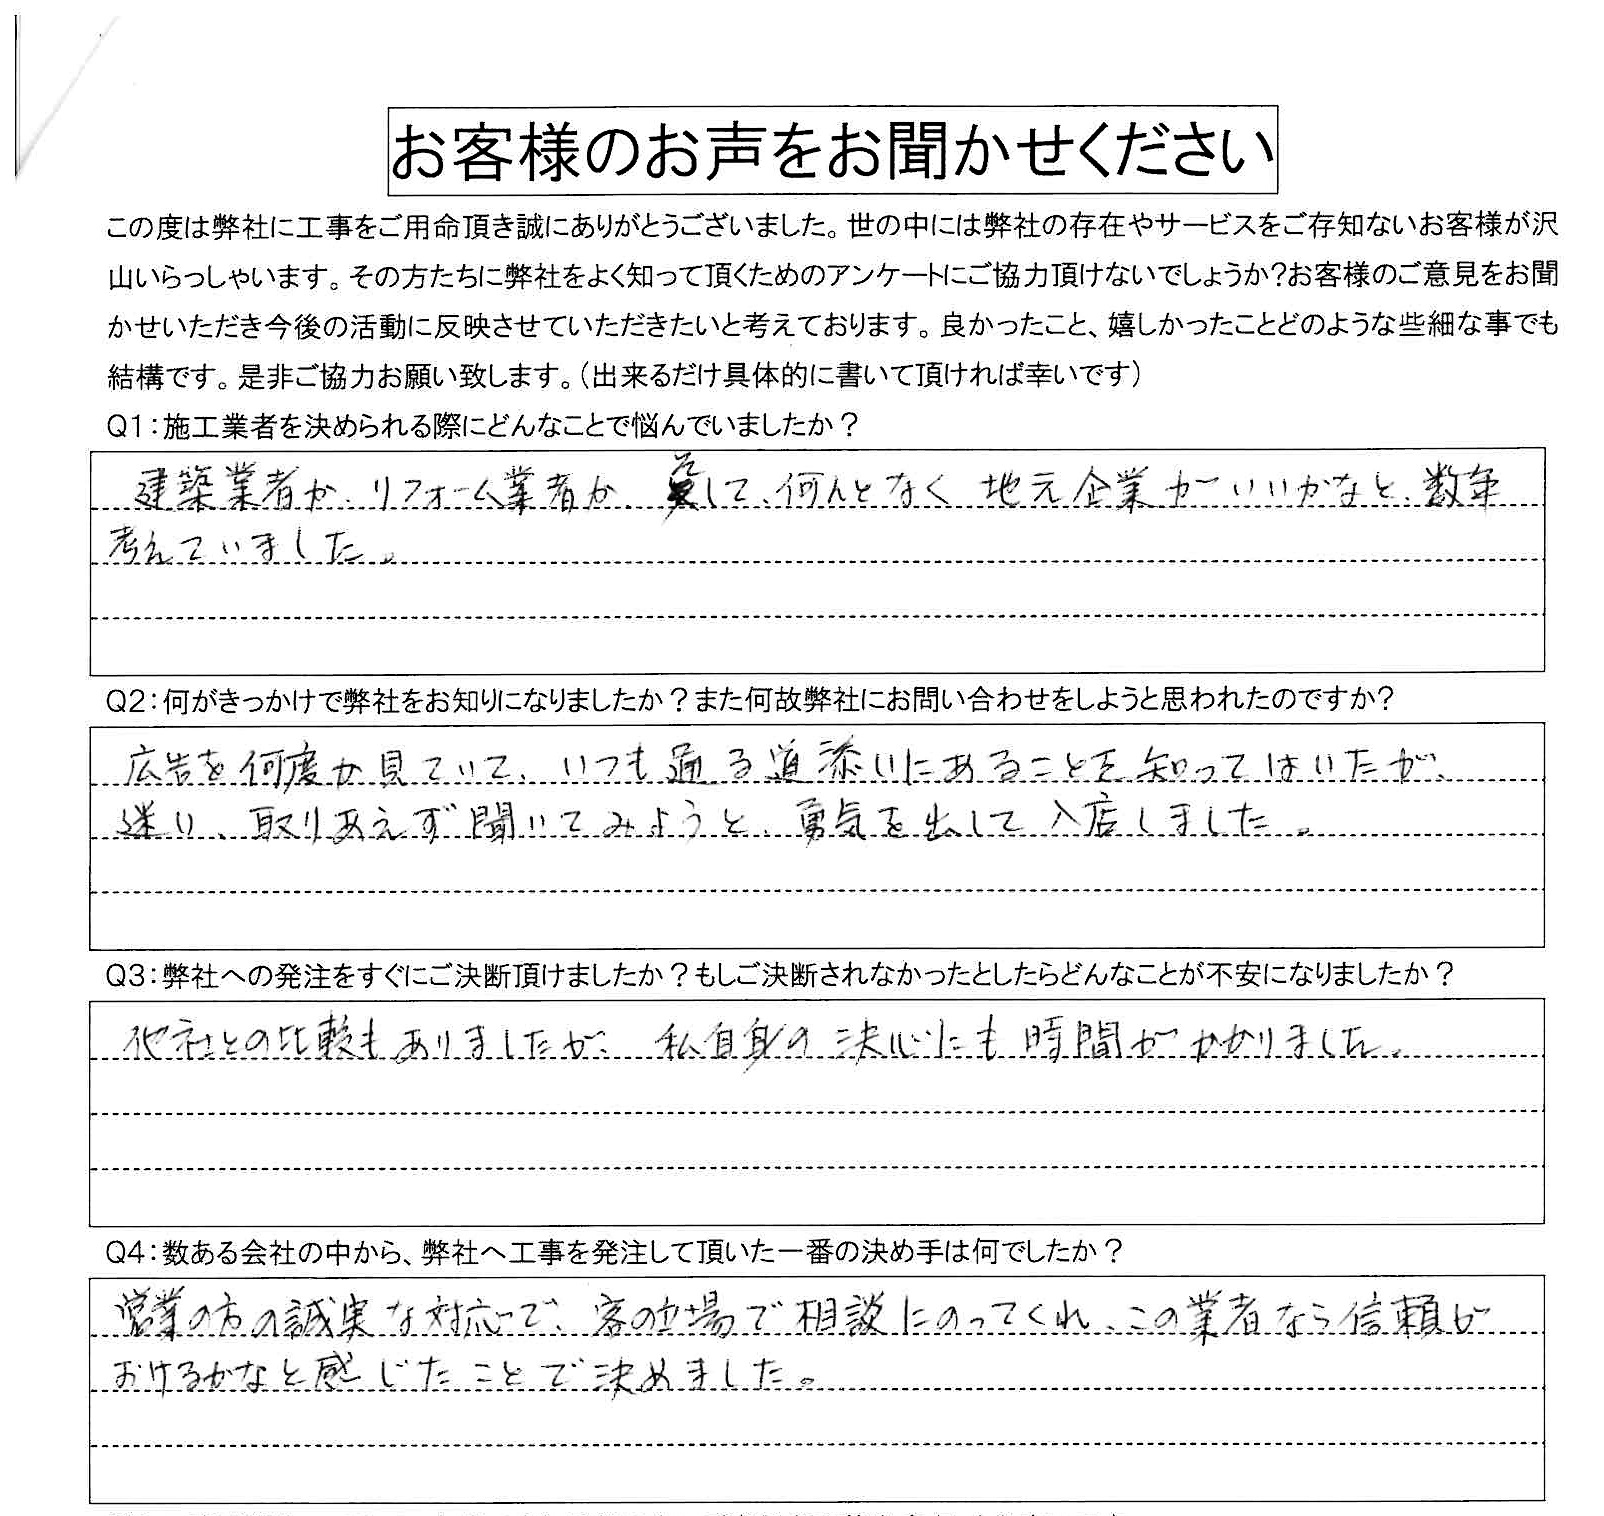 お客様のお声をお聞かせください
この度は弊社に工事をご用命頂き誠にありがとうございました。世の中には弊社の存在やサービスをご存知ないお客様が沢
山いらっしゃいます。その方たちに弊社をよく知って頂くためのアンケートにご協力頂けないでしょうか?お客様のご意見をお聞
かせいただき今後の活動に反映させていただきたいと考えております。良かったこと、嬉しかったことどのような些細な事でも
結構です。是非ご協力お願い致します。(出来るだけ具体的に書いて頂ければ幸いです)
Q1:施工業者を決められる際にどんなことで悩んでいましたか?
建築業者か、リフォーム業者か、そして、何んとなく地元企業がいいかなと、数年
考えていました。
Q2:何がきっかけで弊社をお知りになりましたか?また何故弊社にお問い合わせをしようと思われたのですか?
広告を何度か見ていて、いつも通る道添いにあることを知ってはいたが、
迷い、取りあえず聞いてみようと、勇気を出して入店しました。
Q3:弊社への発注をすぐにご決断頂けましたか?もしご決断されなかったとしたらどんなことが不安になりましたか?
他社との比較もありましたが、私自身の決心にも時間がかかりました。
Q4:数ある会社の中から、弊社へ工事を発注して頂いた一番の決め手は何でしたか?
営業の方の誠実な対応で、客の立場で相談にのってくれ、この業者なら信頼が
おけるかなと感じたことで決めました。